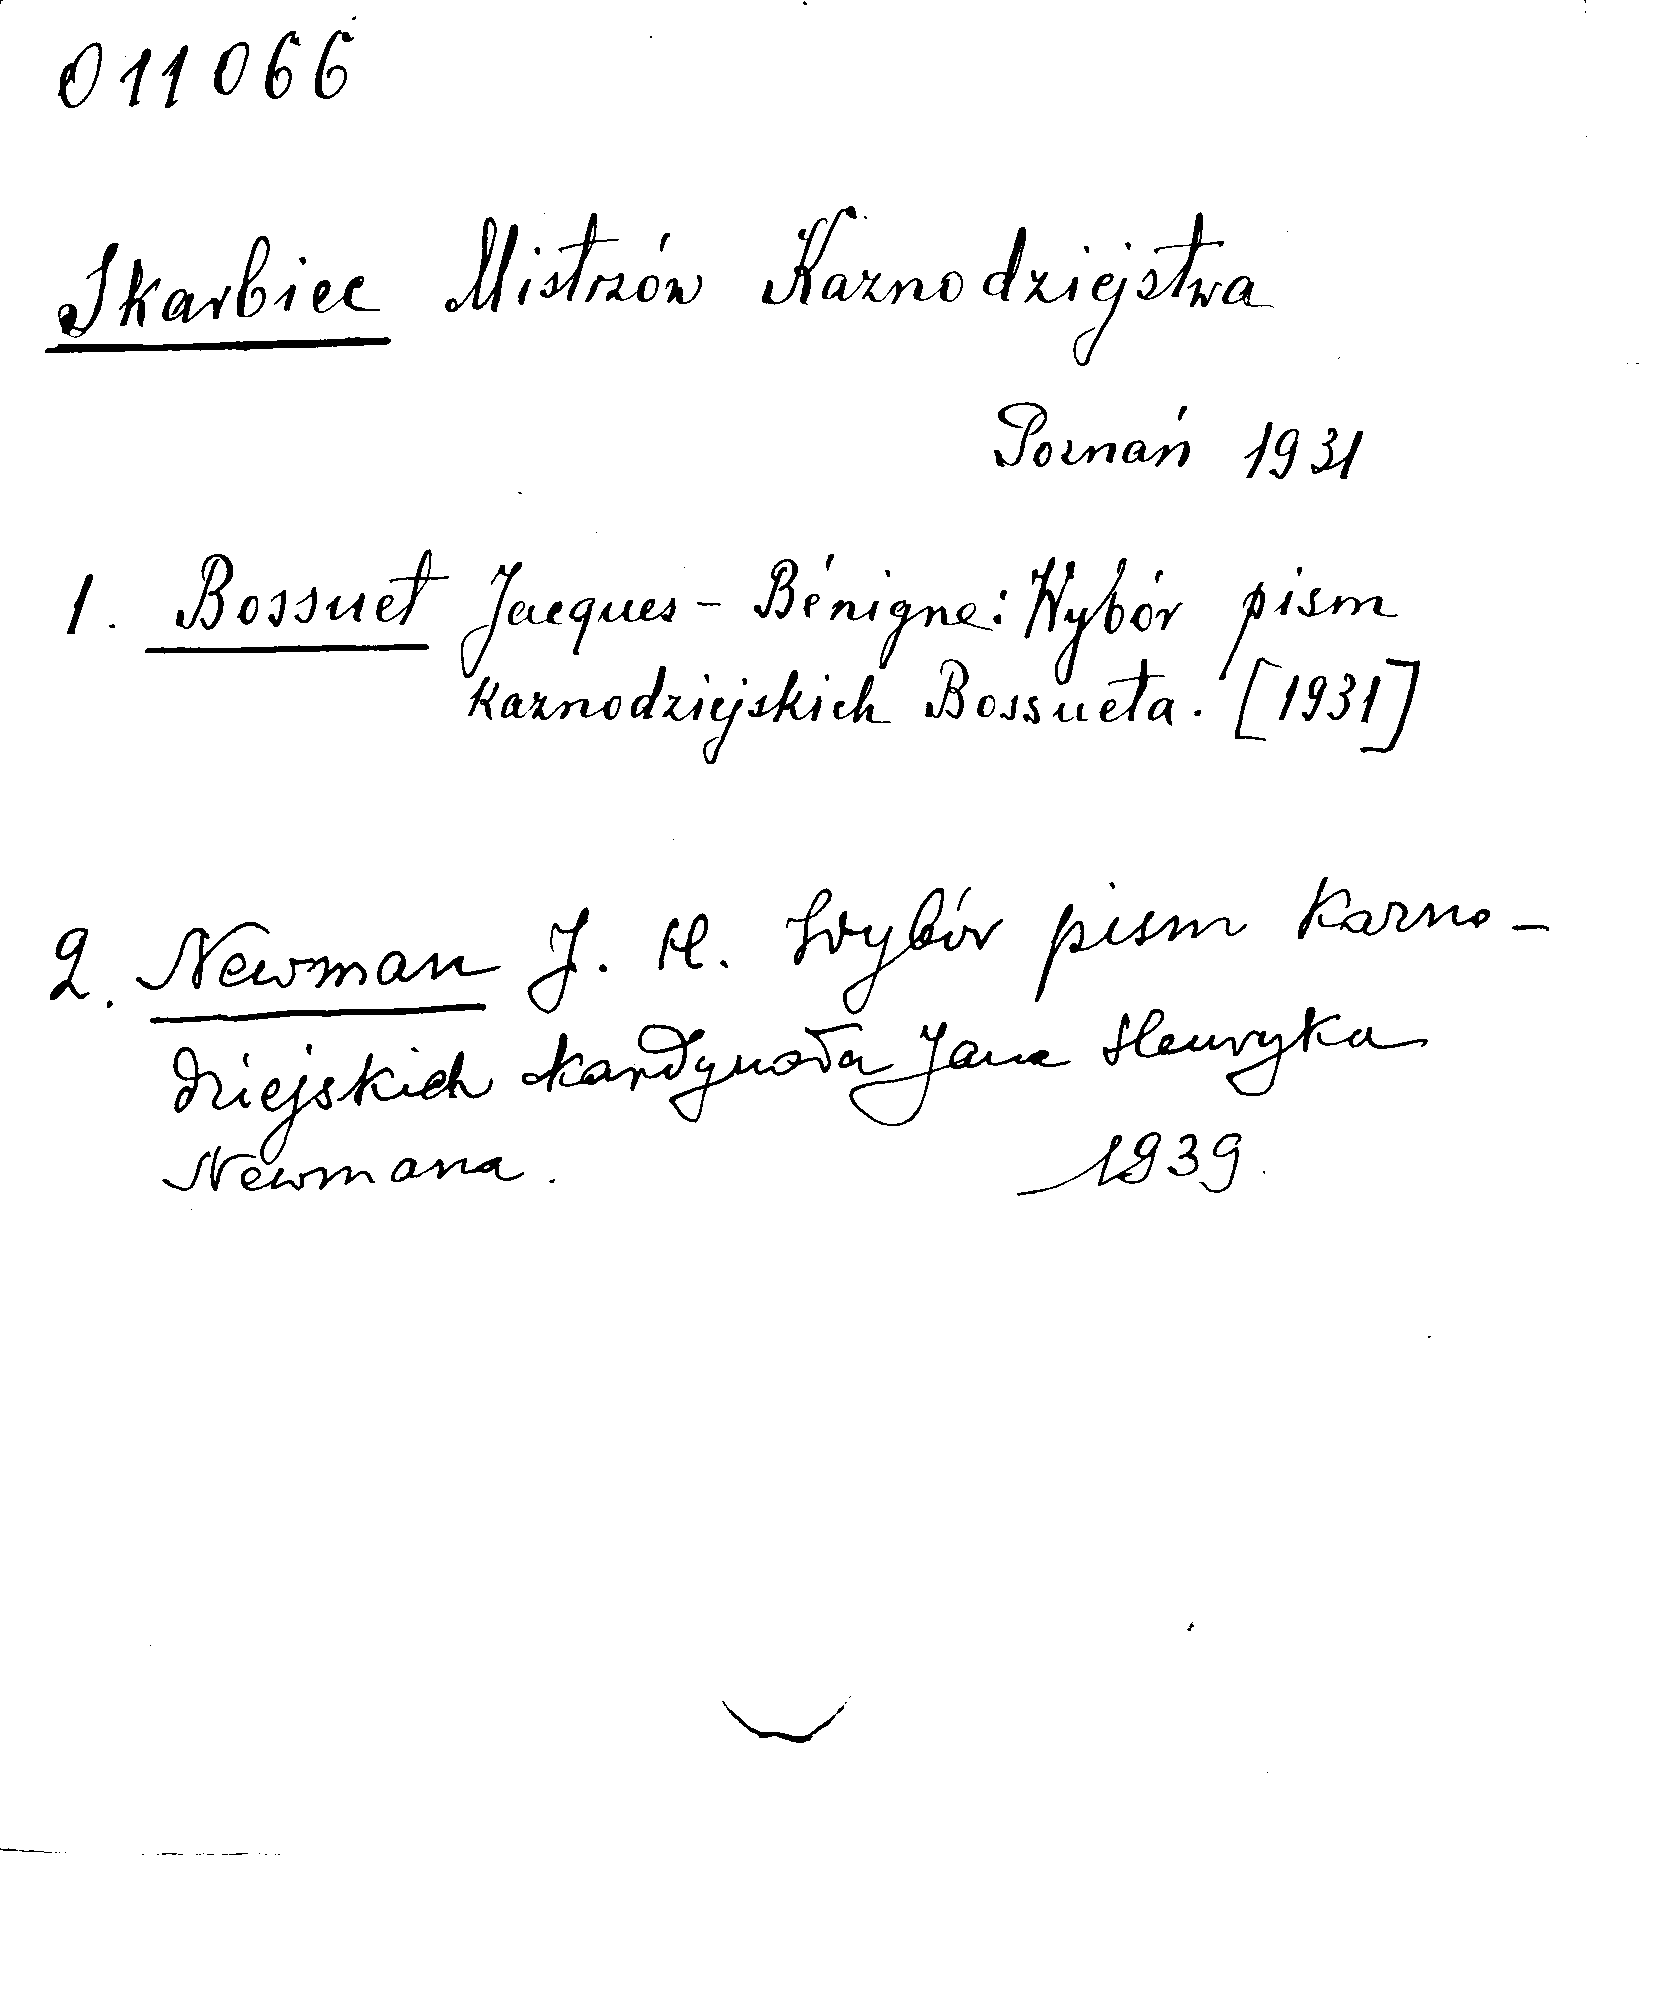 011066
Skarbiec Mistrzów Kaznodziejstwa
Poznań 1931
1. Bossuet Jacques-Bénigne: Wybór pism
kaznodziejskich Bossueta. [1931]
2. Newman J. H. Wybór pism kazno-
dziejskich kardynała Jana Henryka
Newmana. 1939.